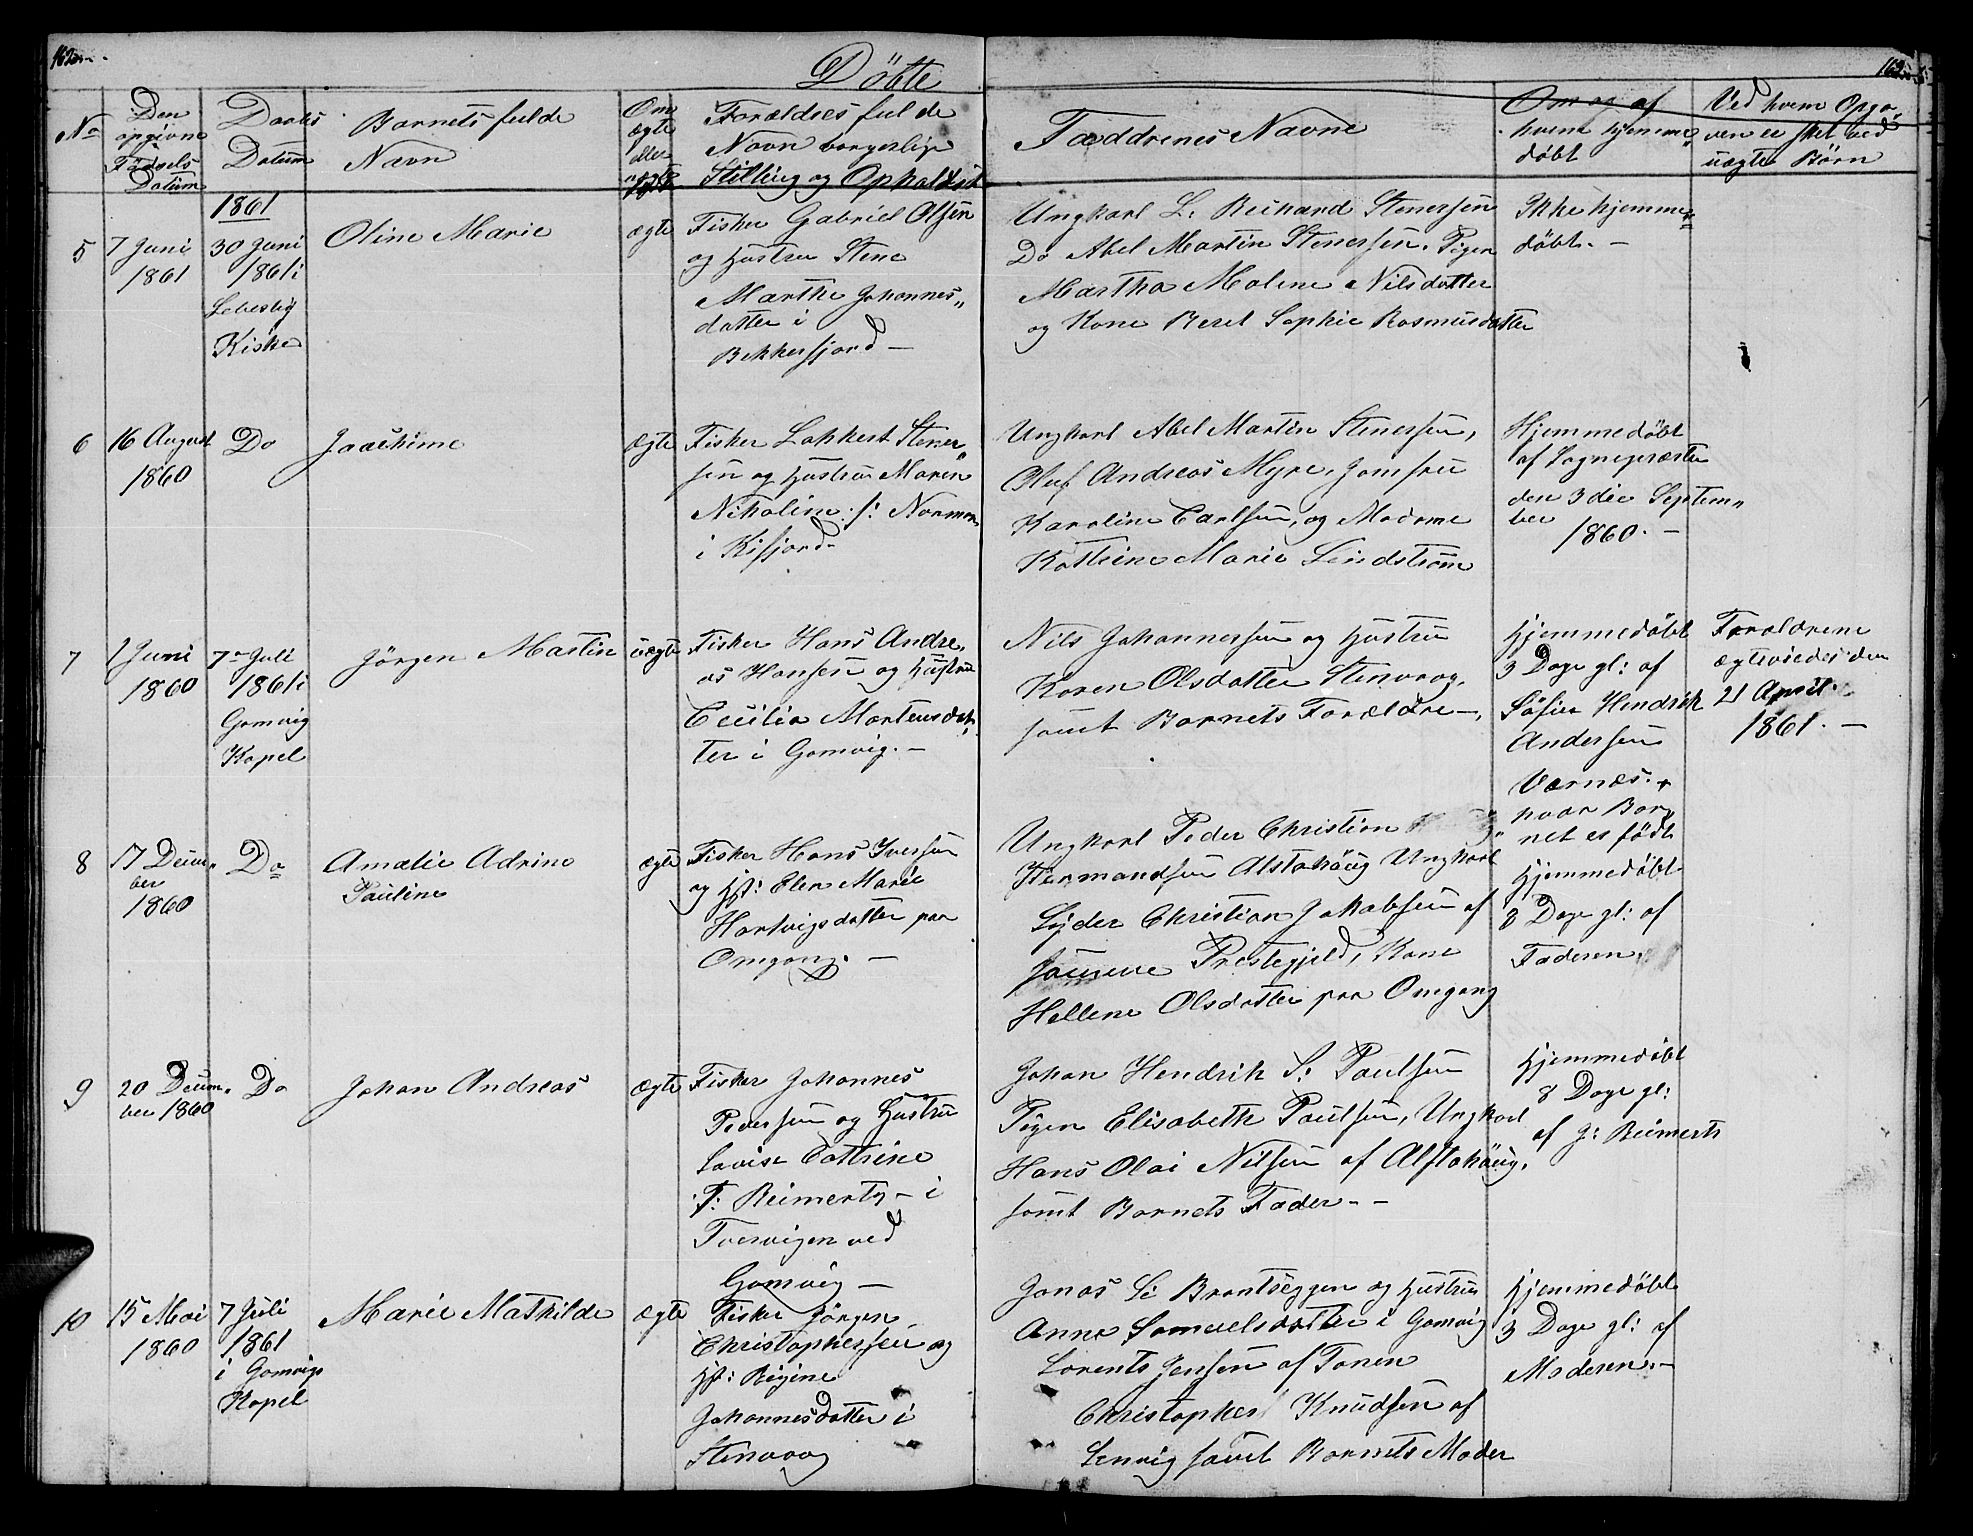 Döbte
No
Den
opgivne
Fødsels
Datum
Daabs
Datum
Barnets fulde
Navn
Om
ægte
eller
uægte
Forældres fulde
Navn borgerlige
Stilling og Opholdst
Faddrenes Navne
Om og af
hvem hjemme
döbt
Ved hvem Opgø
ven er skel ved
uægte Børn
1861
5
7 Juni
1861
30 Juni
1861 i
Lebesby
Kirke
Oline Marie
ægte
Fisker Gabriel Olsen
og Hustru Stene
Marthe Johannes„
datter i
Bekkerfjord —
Ungkarl L: Richard Stenersen
Do Abel Martin Stenersen. Pigen
Martha Malene Nilsdatter
og Kone Berel Sophie Rasmusdatter
Ikke hjemme=
døbt. —
6
16 August
1860
Do
Joachime
ægte
Fisker Lokkert Stener„
sen og Hustru Maren
Nikoline f: Norman
i Kifjord
Ungkarl Abel Martin Stenersen,
Oluf Andreas Myre, Jomfru
Karoline Carlsen, og Madame
Kattrine Marie Lindstrøm
Hjemmedöbt
af Sognepræsten
den 3die Septem„
ber
1860. —
7
1 Juni
1860
7de Juli
1861 i
Gamvig
Kapel
Jörgen Martin
uægte
Fisker Hans Andre„
as Hansen og Hustru
Cecilia Mortensdat„
ter i Gamvig. —
Nils Johannessen og Hustru
Karen Olsdatter Stenvaag,
samt Barnets Forældre —,
Hjemmedöbt
3 Dage gl: af
Hendrik
Andersen
Varnæs. +
hvor Bar„
net er født
Forældrene
ægteviedes den
21 April
1861. —
8
17 Decem„
ber
1860
Do
Amalie Adrine
Pauline
ægte
Fisker Hans Iversen
og Hst: Elen Marie
Hartvigsdatter paa
Omgang. —
Ungkarl Peder Christian
Hermandsen Alstahaug Ungkarl
Sÿder Christian Jakobsen af
samme Prestegjeld, Kone
Hellene Olsdatter paa Omgang
Hjemmedöbt
8 Dage gl: af
Faderen.
9
20 Decem„
ber 1860
Do
Johan Andreas
ægte
Fisker Johannes
Pedersen og Hustru
Lovise Cattrine
f: Reimerts — i
Tvervigen ved
Gamvig —
Johan Hendrik S: Paulsen
Pigen Elisabeth Paulsen, Ungkarl
Hans Olai Nilsen af Alstahaug,
samt Barnets Fader. —
Hjemmedöbt
8 Dage gl:
af J: Reimerts
10
15 Mai
1860
7 Juli
1861
i Gamvigs
Kapel
Marie Mathilde
ægte
Fisker Jörgen
Christophersen og
Hst: Regine
Johannesdatter i
Stenvaag
Jonas L: Brantseggen og Hustru
Anne Samuelsdatter i Gamvig
Lorents Jensen af Tanen
Christopher Knudsen af
Lenvig samt Barnets Moder
Hjemmedöbt
3 Dage gl: af
Moderen. —